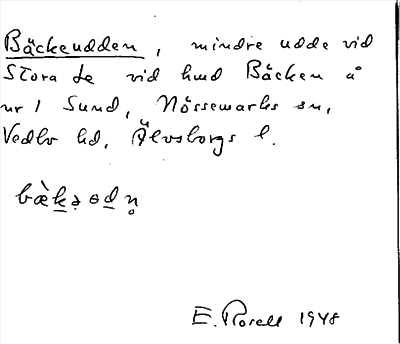 Bäckeudden, mindre udde vid
Stora Le vid hmd Bäcken å
nr 1 Sund, Nössemarks sn,
Vedbo hd, Älvsborgs l.
bæ̀kə ɵdn̥
E. Rosell 1948